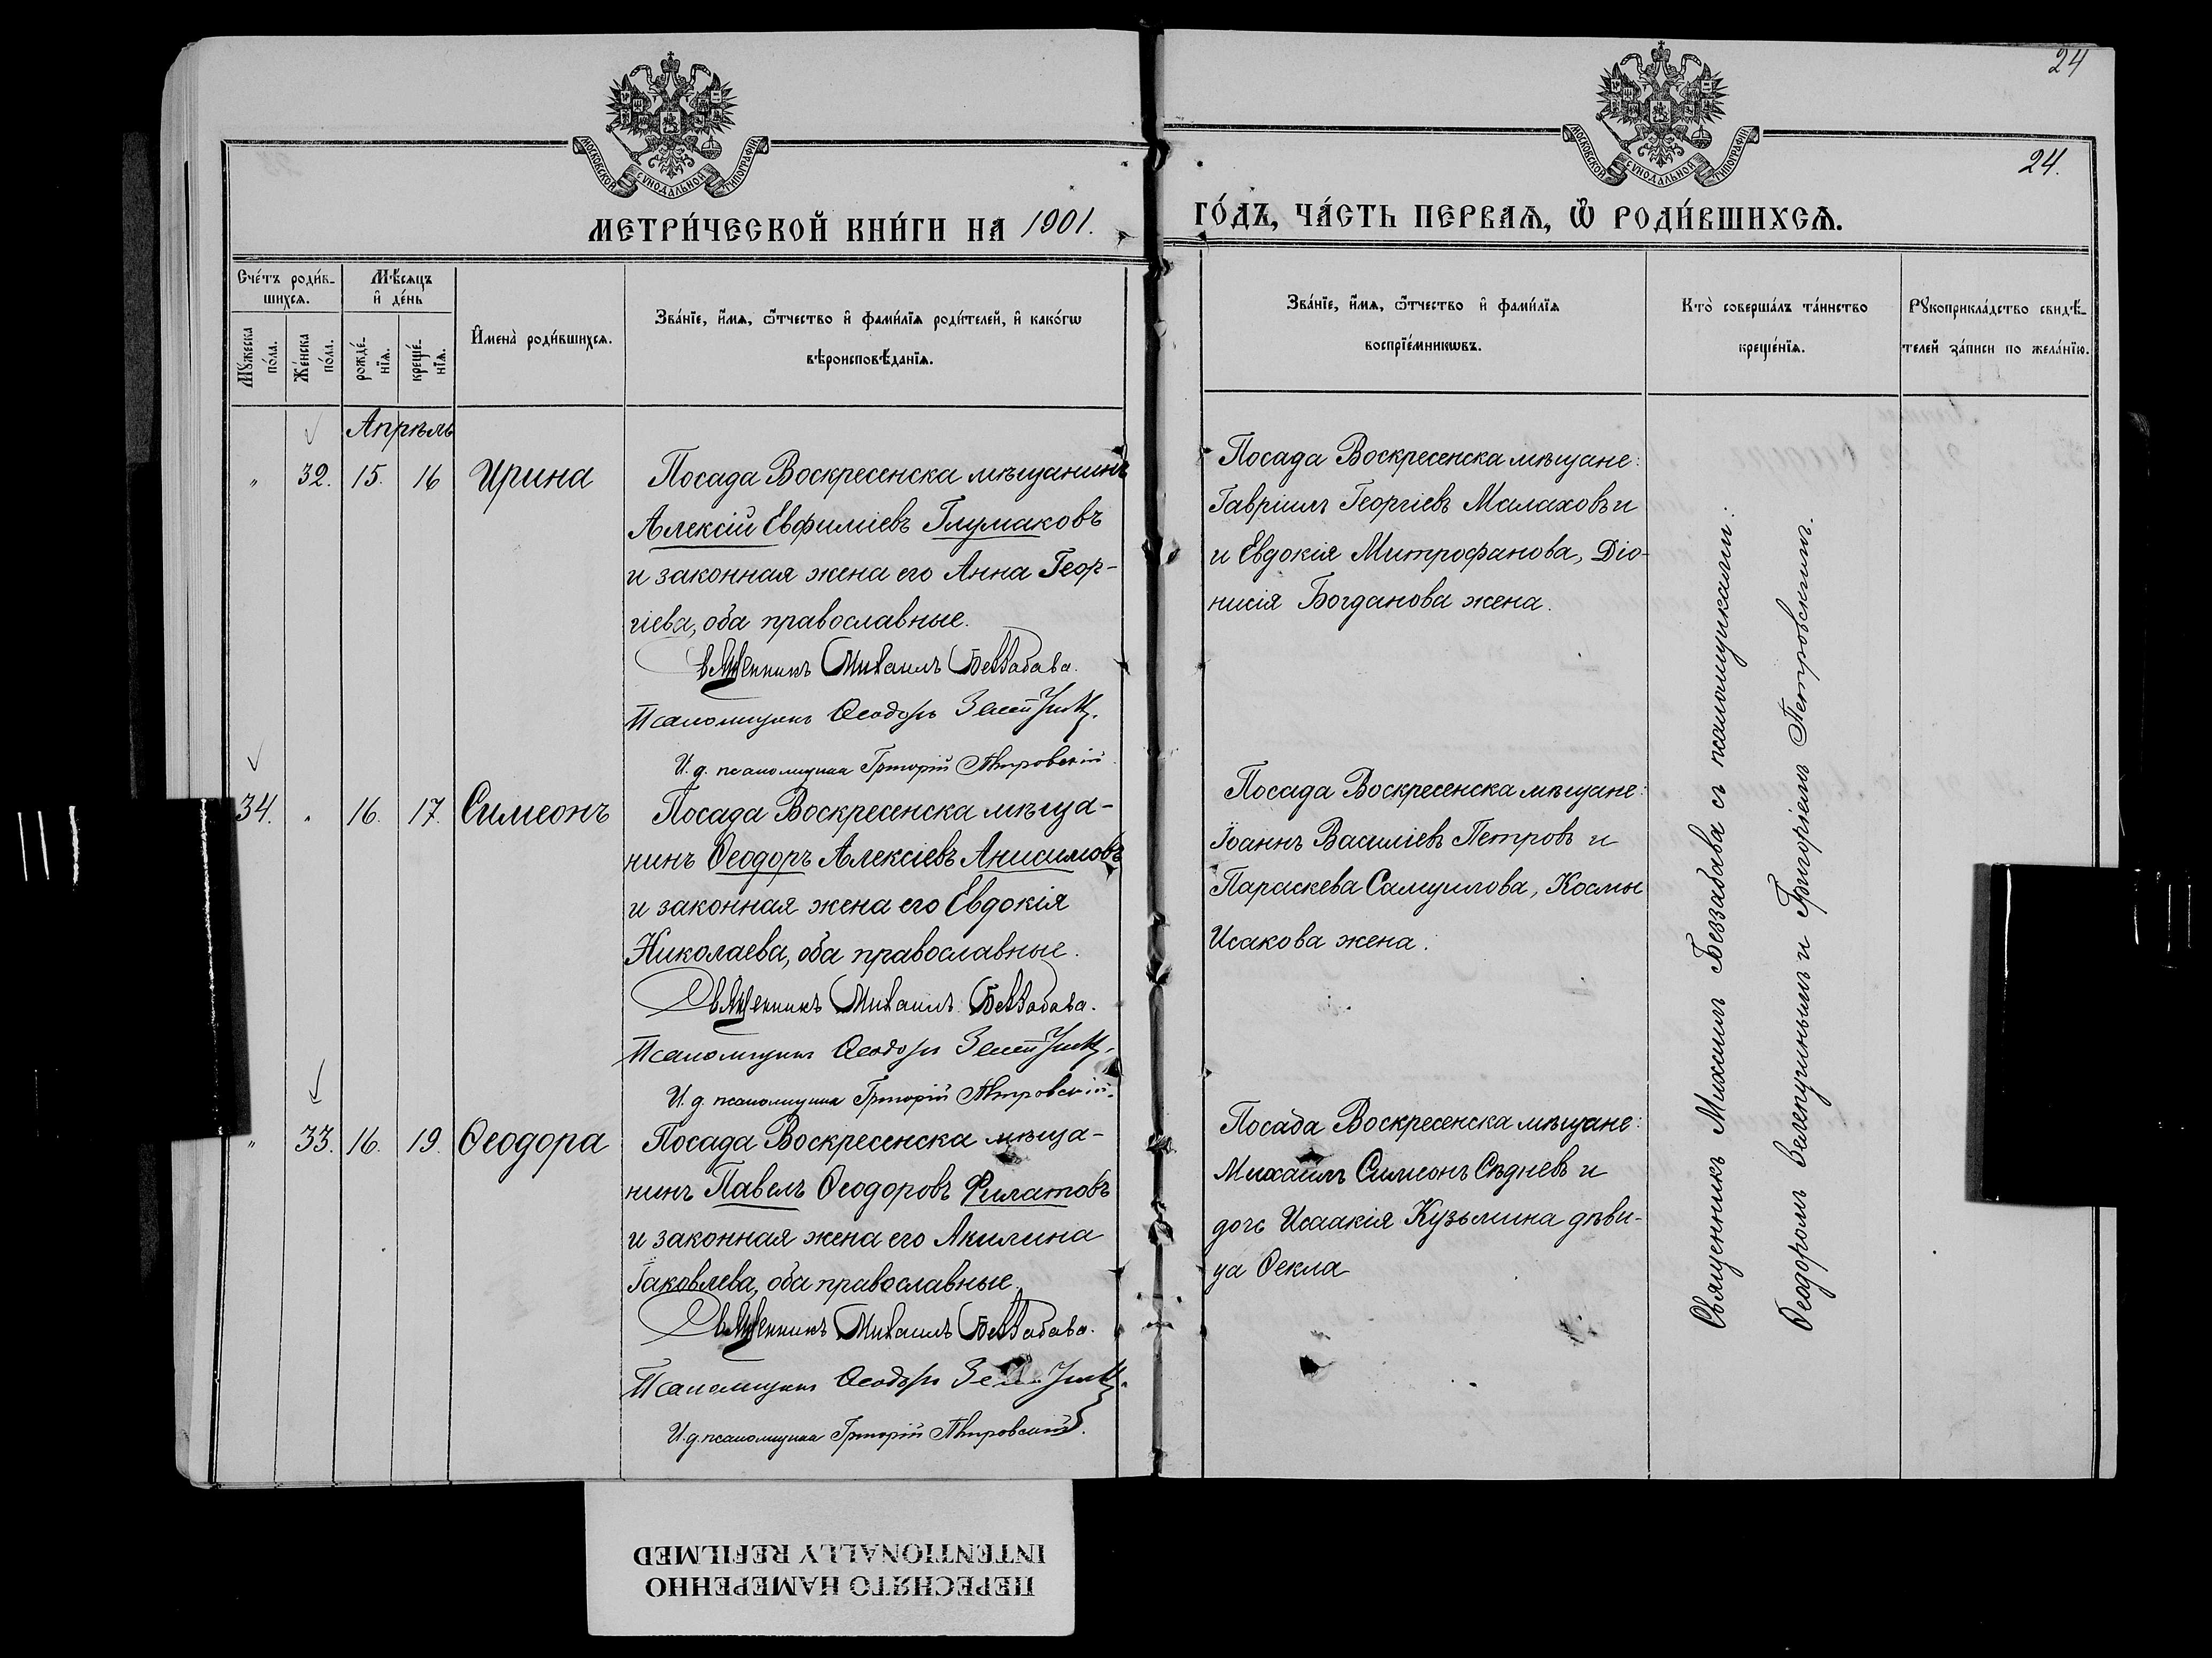 24
МОСКОВСКОЙ СѴНОДАЛЬНОЙ ТИПОГРАФІИ
МОСКОВСКОЙ СѴНОДАЛЬНОЙ ТИПОГРАФІИ
24.
МЕТРИ́ЧЕСКОЙ КНИ́ГИ НА 1901.
ГО́ДЪ, ЧА́СТЬ ПЕРВАѦ, Ѿ РОДИ́ВШИХСѦ.
Сче́тъ роди́в-
шихсѧ.
Мꙋжеска
по́ла.
Же́нска
по́ла.
Мѣ́сѧцъ
и҆ де́нь
рожде́-
нїѧ.
креще́-
нїѧ.
И҆мена̀ роди́вшихсѧ.
Зва́нїе, и҆́мѧ, ѻ҆́тчество и҆ фами́лїѧ роди́телей, и҆ како́гѡ
вѣроисповѣ́данїѧ.
Зва́нїе, и҆́мѧ, ѻ҆́тчество и҆ фами́лїѧ
воспрїе́мникѡвъ.
Кто̀ соверша́лъ та́инство
креще́нїѧ.
Рꙋкоприкла́дство свидѣ́-
телей за́писи по жела́нїю.
Апрѣль
" 32. 15. 16 Ирина
Посада Воскресенска мѣщанинъ
Алексій Евфиміевъ Глумаковъ
и законная жена его Анна Геор-
гіева, оба православные.
Священникъ Михаилъ Беззабава.
Псаломщикъ Ѳеодоръ
И. д. псаломщика Григорій Петровскій
Посада Воскресенска мѣщане:
Гавріилъ Георгіевъ Малаховъ и
и Евдокія Митрофанова, Діо-
нисія Богданова жена.
34. " 16. 17. Симеонъ
Посада Воскресенска мѣща-
нинъ Ѳеодоръ Алексіевъ Анисимовъ
и законная жена его Евдокія
Николаева, оба православные.
Священникъ Михаилъ Беззабава.
Псаломщикъ Ѳеодоръ
И. д. псаломщика Григорій Петровскій.
Посада Воскресенска мѣщане:
Іоаннъ Василіевъ Петровъ и
Параскева Самуилова, Космы
Исакова жена.
" 33. 16. 19. Ѳеодора
Посада Воскресенска мѣща-
нинъ Павелъ Ѳеодоровъ Филатовъ
и законная жена его Акилина
Іаковлева, оба православные.
Священникъ Михаилъ Беззабава.
Псаломщикъ Ѳеодоръ
И. д. псаломщика Григорій Петровскій.
Посада Воскресенска мѣщане:
Михаилъ Симеонъ Сѣдневъ и
дочь Исаакія Кузьмина дѣви-
ца Ѳекла
Священникъ Михаилъ Беззабава съ псаломщиками:
Ѳеодоромъ и Григоріемъ Петровскимъ.
ПЕРЕСНЯТО НАМЕРЕННО
INTENTIONALLY REFILMED